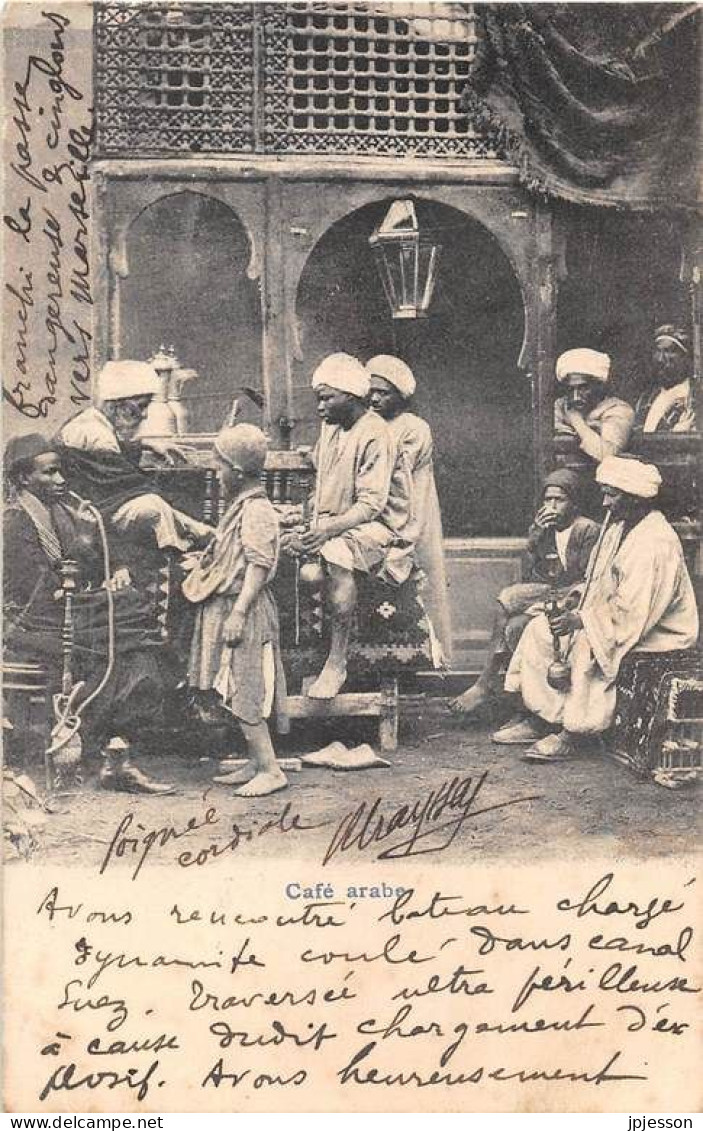 Café arabe
Avons rencontré bateau chargé
dynamite coulé dans canal
Suez. Traversée ultra périlleuse
à cause dudit chargement d'ex
plosif. Avons heureusement
franchi la passe
dangereuse & cinglons
vers Marseille
Poignée
cordiale
jpjesson